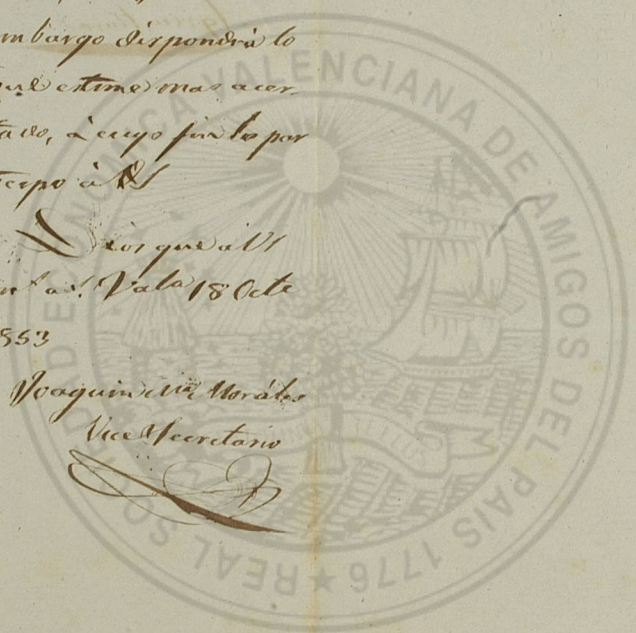 mbargo dispondrá lo
que estime mas acer-
tado, à cuyo fin lo par
ticipo à VS
Dios gue à VS
m.s a.s Val.a 18 Octe
853
Joaquin Ma. Moráles
Vice Secretario
REAL SOCIEDAD ECONOMICA VALENCIANA DE AMIGOS DEL PAIS 1776 ★